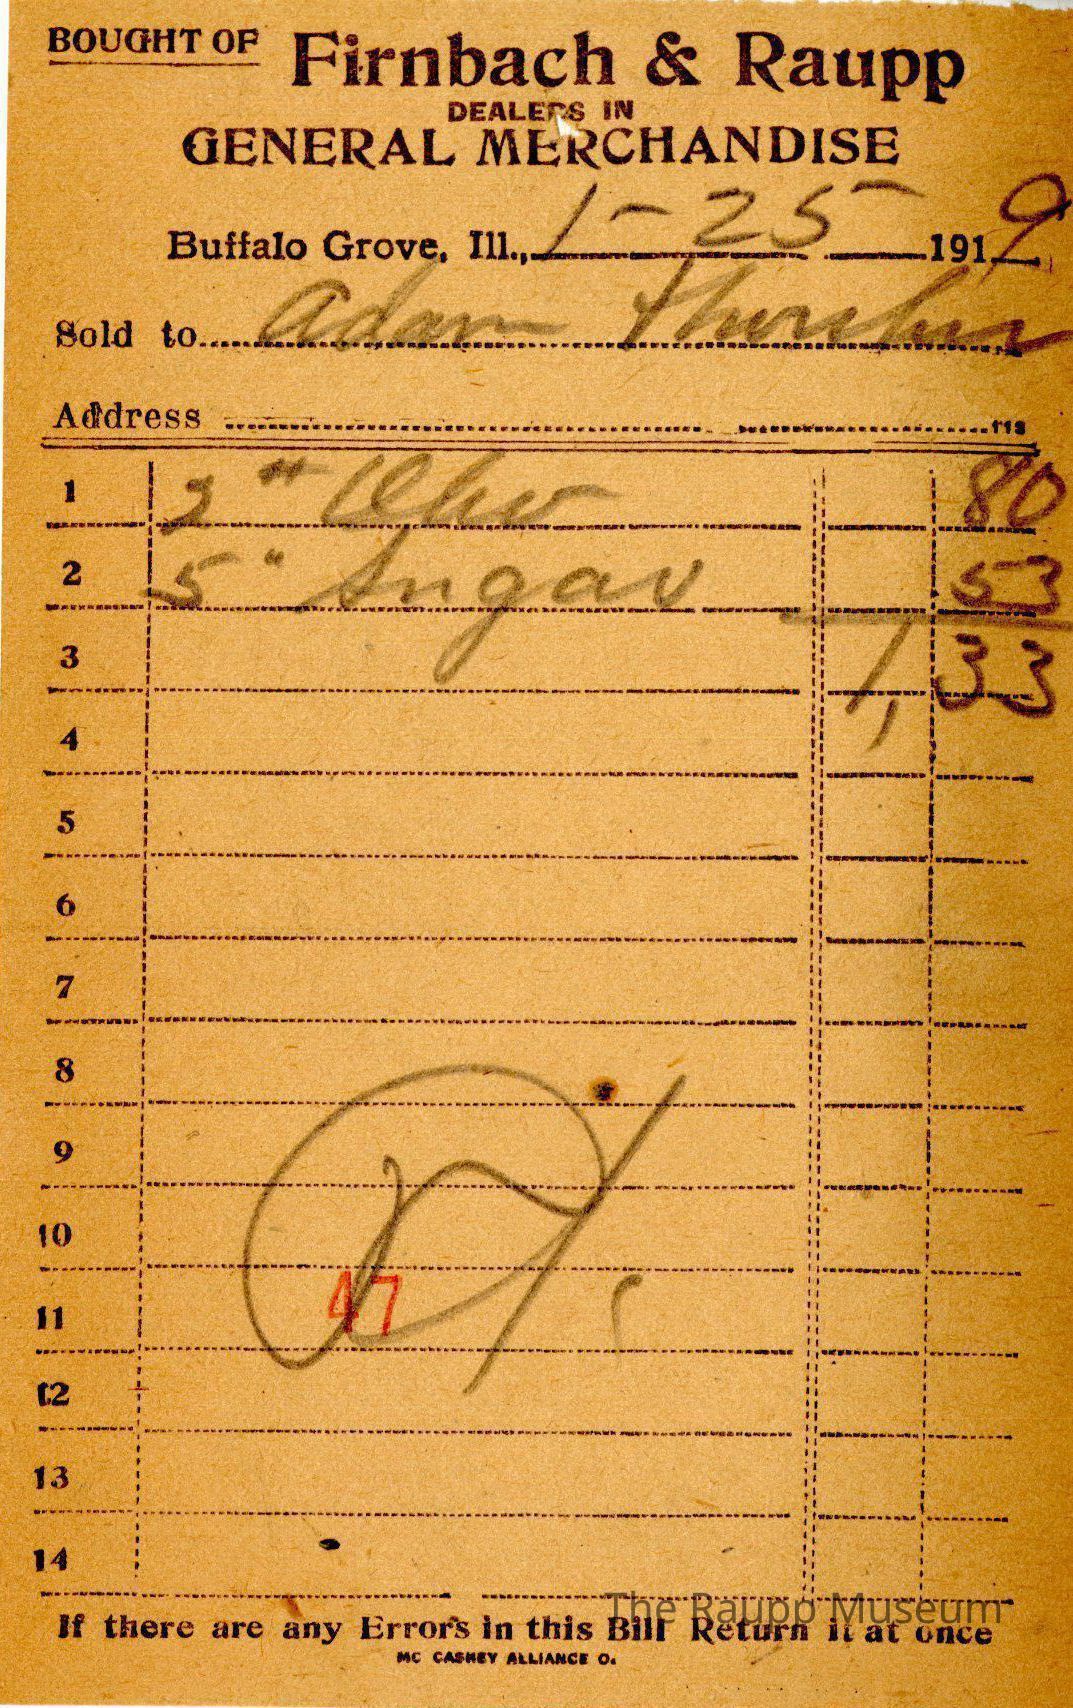 BOUGHT OF Firnbach & Raupp
DEALERS IN
GENERAL MERCHANDISE
Buffalo Grove, Ill., 1-25- 1919
Sold to Adam
Address
1 2 " 80
2 5 " Sugar 53
3 1,33
4
5
6
7
8
9
10
47
11
12
13
14
The Raupp Museum
If there are any Errors in this Bill Return it at once
MC CASKEY ALLIANCE O.